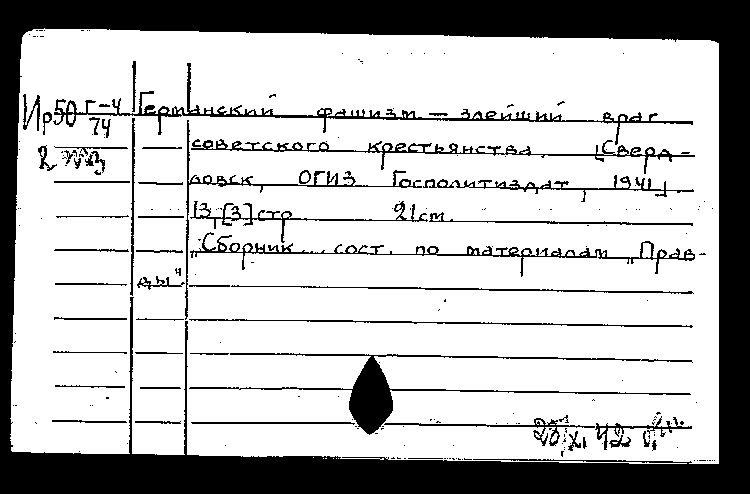 Ир50 Г-4 Германский фашизм — злейший враг
74
2 экз советского крестьянства. [Сверд-
ловск, ОГИЗ Госполитиздат, 1941].
13,[3] стр 21см.
„Сборник сост. по материалам „Прав-
ды"
42